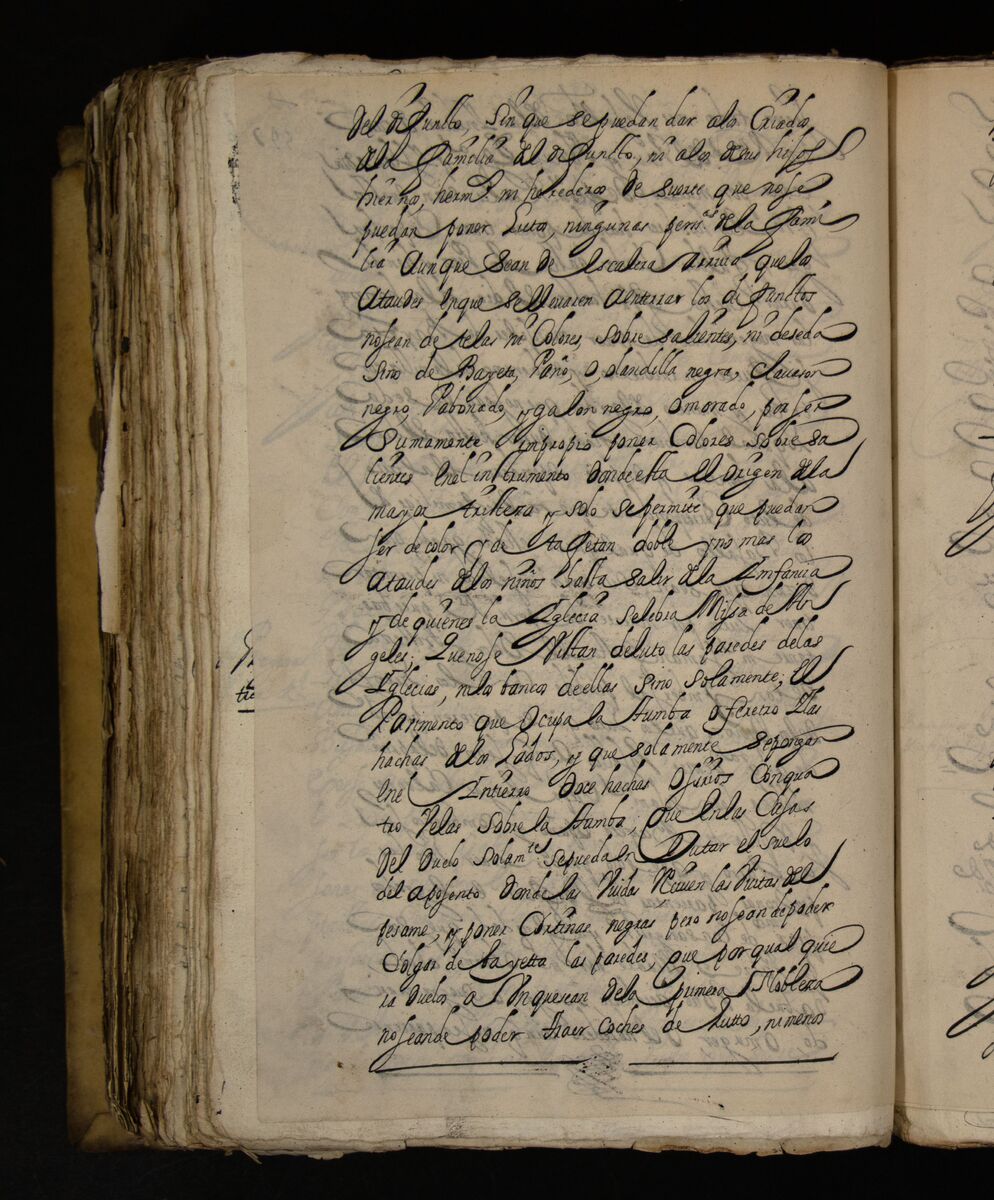 del difunto, sin que se puedan dar alos Criados
dela familia del difunto, ni alos desus hijos
hiernos, herm.s ni herederos de suerte que nose
puedan poner Lutos, ningunas perss.as dela fami
lia Aunque sean de escalera Arriva que los
Ataudes enque se llevaren aenterrar los difuntos
nosean de telas ni Colores sobre salientes, ni deseda
sino de Bayeta, Paño, o, olandilla negra, clavason
negro, Pabonado, y galon negro, omorado, por ser
Sumamente inpropio poner Colores sobre sa
lientes enel instrumento donde esta el origen dela
mayor tristeza, y solo se permite que puedan
ser de color y de tafetan doble y no mas los
Ataudes delos niños hasta salir dela Infancia
y de quienes la Iglecia selebra Missa de An
geles; Que nose Vistan deluto las paredes delas
Iglecias, nilos bancos deellas sino solamente, El
Pavimento que Ocupa la tumba o feretro Ylas
hachas delos Lados, y que solamente sepongan
enel Entierro doce hachas O sirios Conqua
tro Velas sobre la tumba; Que en las Casas
del Duelo solam.te se pueda en Lutar el suelo
del aposento donde las Viudas Reciven las Visitas del
pesame, y poner Cortinas negras pero nosean de poder
Colgar de bayetta las paredes, que por qual quie
ra duelos a Unque sean dela primera Nobleza
nosean de poder traer coches de lutto, ni menos